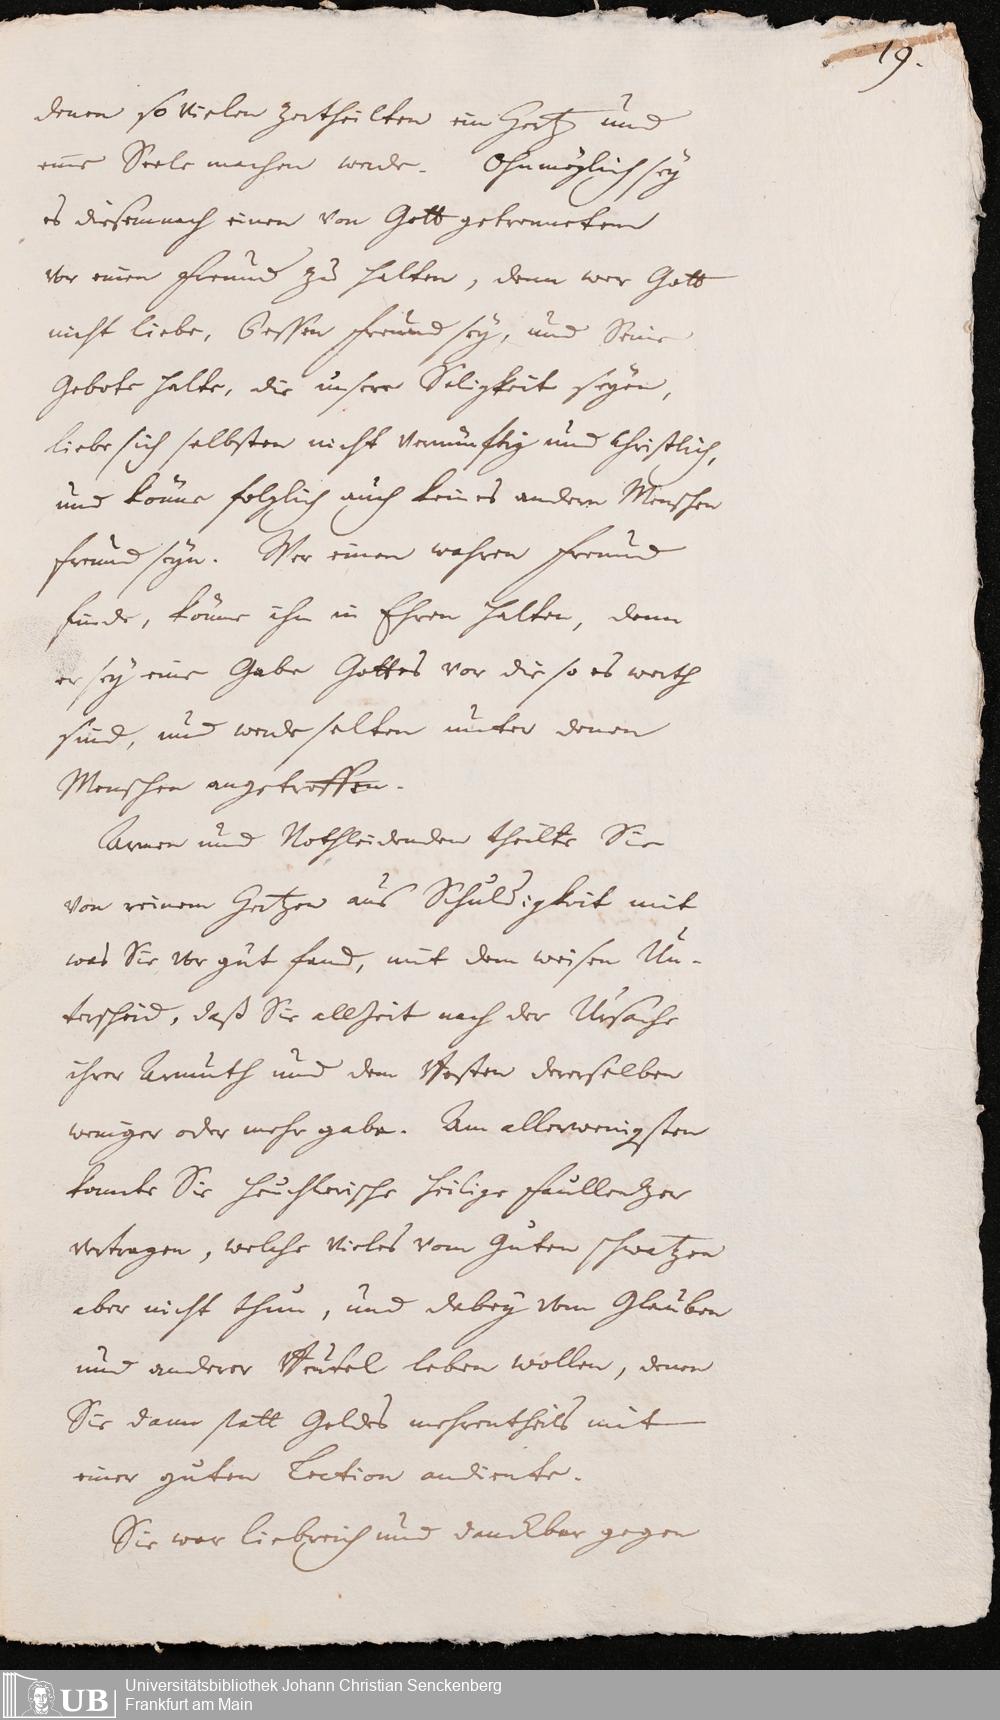 19.
denen so vielen zertheilten ein Hertz und
eine Seele machen werde. Ohnmöglich sey
es diesemnach einen von Gott getrenneten
vor einen Freund zu halten, denn wer Gott
nicht liebe, dessen Freund sey, und Seine
Gebote halte, die unsere Seligkeit seyen,
liebe sich selbsten nicht vernünftig und Christlich,
und könne folglich auch keines andern Menschen
Freund seyn. Wer einen wahren Freund
finde, könne ihn in Ehren halten, denn
er sey eine Gabe Gottes vor die so es werth
sind, und werde selten unter denen
Menschen angetroffen.
Armen und Nothleidenden theilte Sie
von reinem Hertzen aus Schuldigkeit mit
was Sie vor gut fand, mit dem weisen Un-
terscheid, daß Sie allzeit nach der Ursache
ihrer Armuth und dem derselben
weniger oder mehr gabe. Am allerwenigsten
konnte Sie heuchlerische heilige Faullentzer
vertragen, welche vieles vom Guten schwatzen
aber nicht thun, und dabey vom Glauben
und anderer Beutel leben wollen, denen
Sie dann statt Geldes mehrentheils mit
einer guten Lection andiente.
Sie war liebreich und danckbar gegen
UB Universitätsbibliothek Johann Christian Senckenberg
Frankfurt am Main